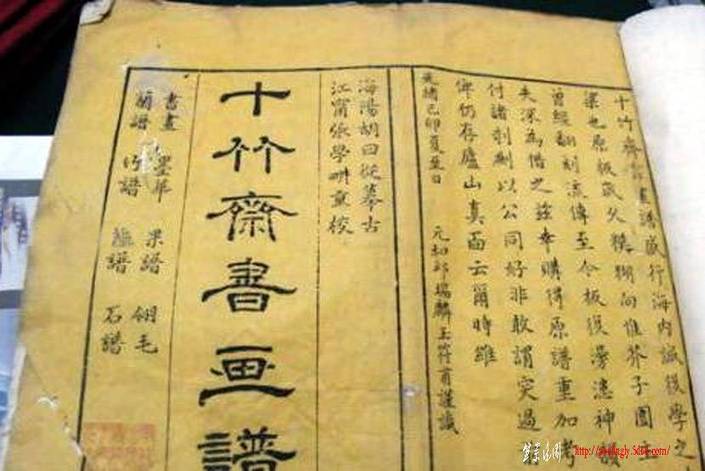 十竹齋書畫譜盛行海内誠後學之
梁也原板歲久模糊向惟芥子園主
曾經翻刻流傳至今板復漫漶神韻
失深為惜之茲幸購得原譜重加考
付諸剞劂以公同好非敢謂突過前
俾仍存廬山真面云爾時維
光緒己卯夏至日
元和邱瑞麟玉符甫謹識
海陽胡曰從摹古
江甯張學畊重校
十竹齋書画譜
書畫 墨華 果譜 翎毛
蘭譜 竹譜 譜 石譜